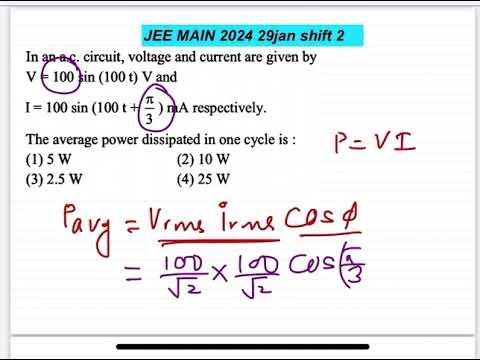 JEE MAIN 2024 29jan shift 2
In an a.c. circuit, voltage and current are given by
V = 100 sin (100 t) V and
I = 100 sin (100 t + π/3) mA respectively.
The average power dissipated in one cycle is :
P = V I
(1) 5 W (2) 10 W
(3) 2.5 W (4) 25 W
Pavg = Vrms irms Cos ϕ
= 100/√2 × 100/√2 Cos(π/3